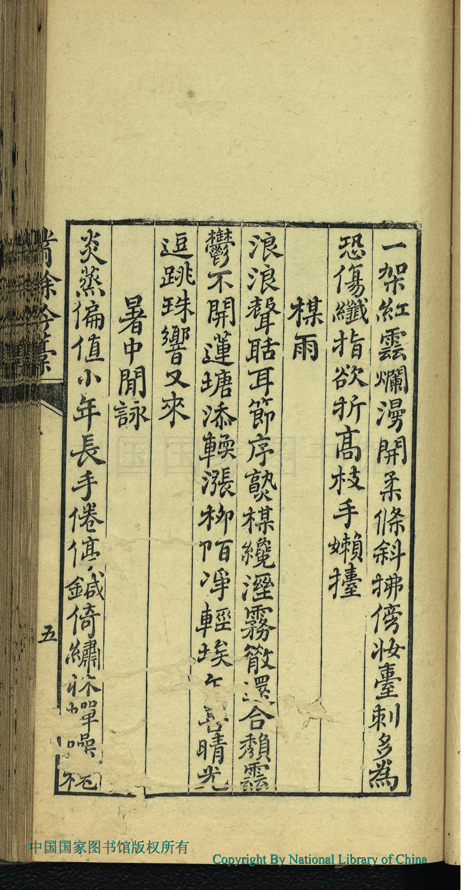 一架紅雲爛漫開柔條斜拂傍妝臺刺多為
恐傷纖指欲折高枝手嬾擡
楳雨
浪浪聲聒耳節序熟楳纔溼霧散還合頹雲
鬱不開蓮塘添輭漲柳陌凈輕埃喜晴光
逗跳珠響又來
暑中閒詠
炎蒸偏值小年長手倦停鍼倚繡牀蟬噪
餘吟草
五
中国国家图书馆版权所有
Copyright By National Library of China